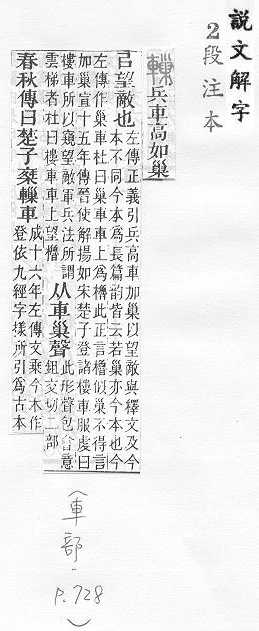 說文解字
2段注本
轈 兵車高如巢
㠯望敵也 左傳正義引兵高車加巢以望敵與釋文及今
本不同今本爲長篇韵皆云若巢亦今本也今
左傳作巢車杜曰巢車車上爲櫓此正言櫓似巢不得言
加巢宣十五年傳晉使解揚如宋楚子登諸樓車服虔曰
樓車所以窺望敵軍兵法所謂
雲梯者杜曰樓車車上望櫓 从車巢聲 此形聲包會意
鉏交切二部
春秋傳曰楚子椉轈車 成十六年左傳文乘今木作
登依九經字樣所引爲古本
(車部-
P.728
)